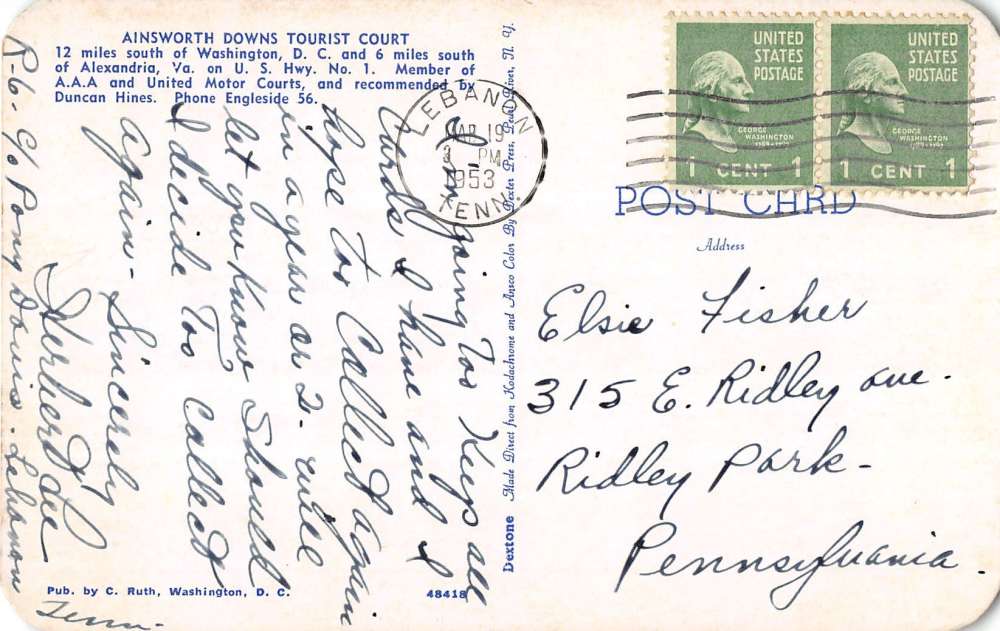 AINSWORTH DOWNS TOURIST COURT
12 miles south of Washington, D. C. and 6 miles south
of Alexandria, Va. on U. S. Hwy. No. 1. Member of
A.A.A and United Motor Courts, and recommended by
Duncan Hines. Phone Engleside 56.
I am going Too Keep all
Cards I have and I
hope Too Collect again
in a year or 2- will
let you Know Should
I decide Too Collect
again - Sincerely
Herbert Lee
R-6- C/o Pomy Davis - Lebanon
Tenn-
Pub. by C. Ruth, Washington, D. C.
48418
Dextone Made Direct from Kodachrome and Ansco Color By Dexter Press, Pearl River, N. Y.
LEBANON
MAR 19
PM
1953
TENN.
UNITED
STATES
POSTAGE
GEORGE
WASHINGTON
1789-1797
1 CENT 1
UNITED
STATES
POSTAGE
GEORGE
WASHINGTON
1789-1797
1 CENT 1
POST CARD
Address
Elsie Fisher
315 E. Ridley ave.
Ridley Park-
Pennsylvania.